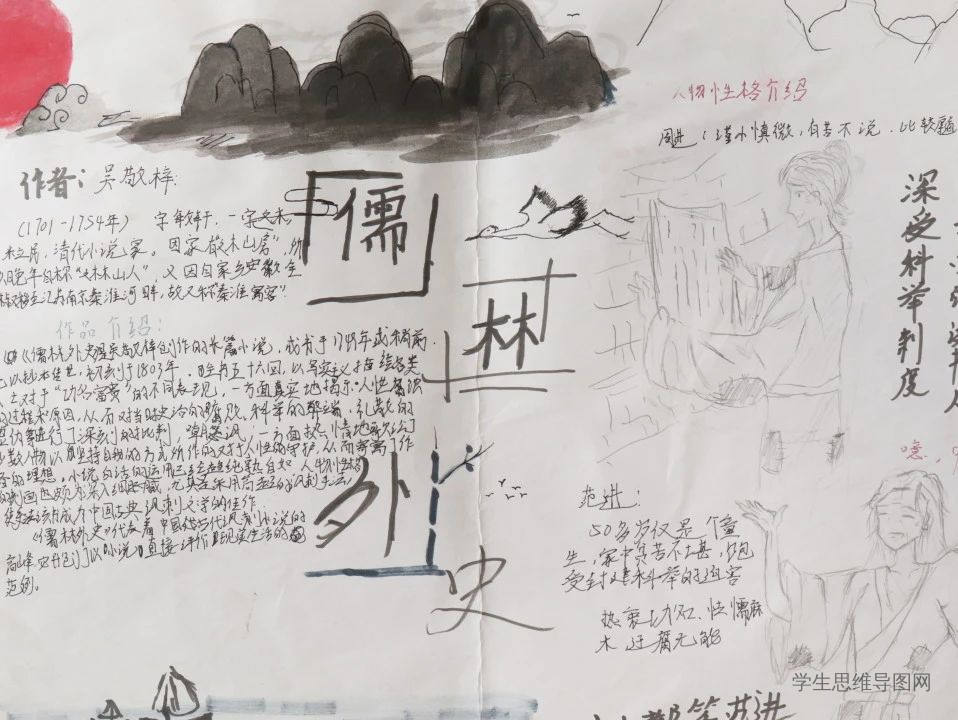 作者：吴敬梓：
（1701-1754年）字敏轩，一字文木
清代小说家。因家有"文木山房"，所
晚年自称"文木山人"，又因自家乡安徽全
江苏南京秦淮河畔，故又称"秦淮寓客"
作品介绍：
《儒林外史》是吴敬梓创作的长篇小说，成书于1749年或稍前
以抄本传世，初刻于1803年。全书五十六回，以写实主义描绘各类
士对于"功名富贵"的不同表现，一方面真实地揭示人性
的过程和原因，从而对当时吏治的腐败、科举的弊端、礼教的
虚伪等进行了深刻的批判
少数人物以坚持自我的方式所作的对于人性的守护，从而寄寓了作
者的理想。小说白话的运用已趋纯熟自如，人物性格
的刻画也颇为深入细腻，尤其是采用高超的讽刺手法
使该书成为中国古典讽刺文学的佳作
《儒林外史》代表着中国古代讽刺小说的
高峰，它开创了以小说直接评价现实生活的
范例。
儒
林
外
史
人物性格介绍
周进：谨小慎微，有苦不说，比较
深受科举制度
范进：
50多岁仅是个童
生，家中贫苦不甚，饱
受封建科举的迫害
热衷功名，怯懦麻
木迂腐无能
学生思维导图网